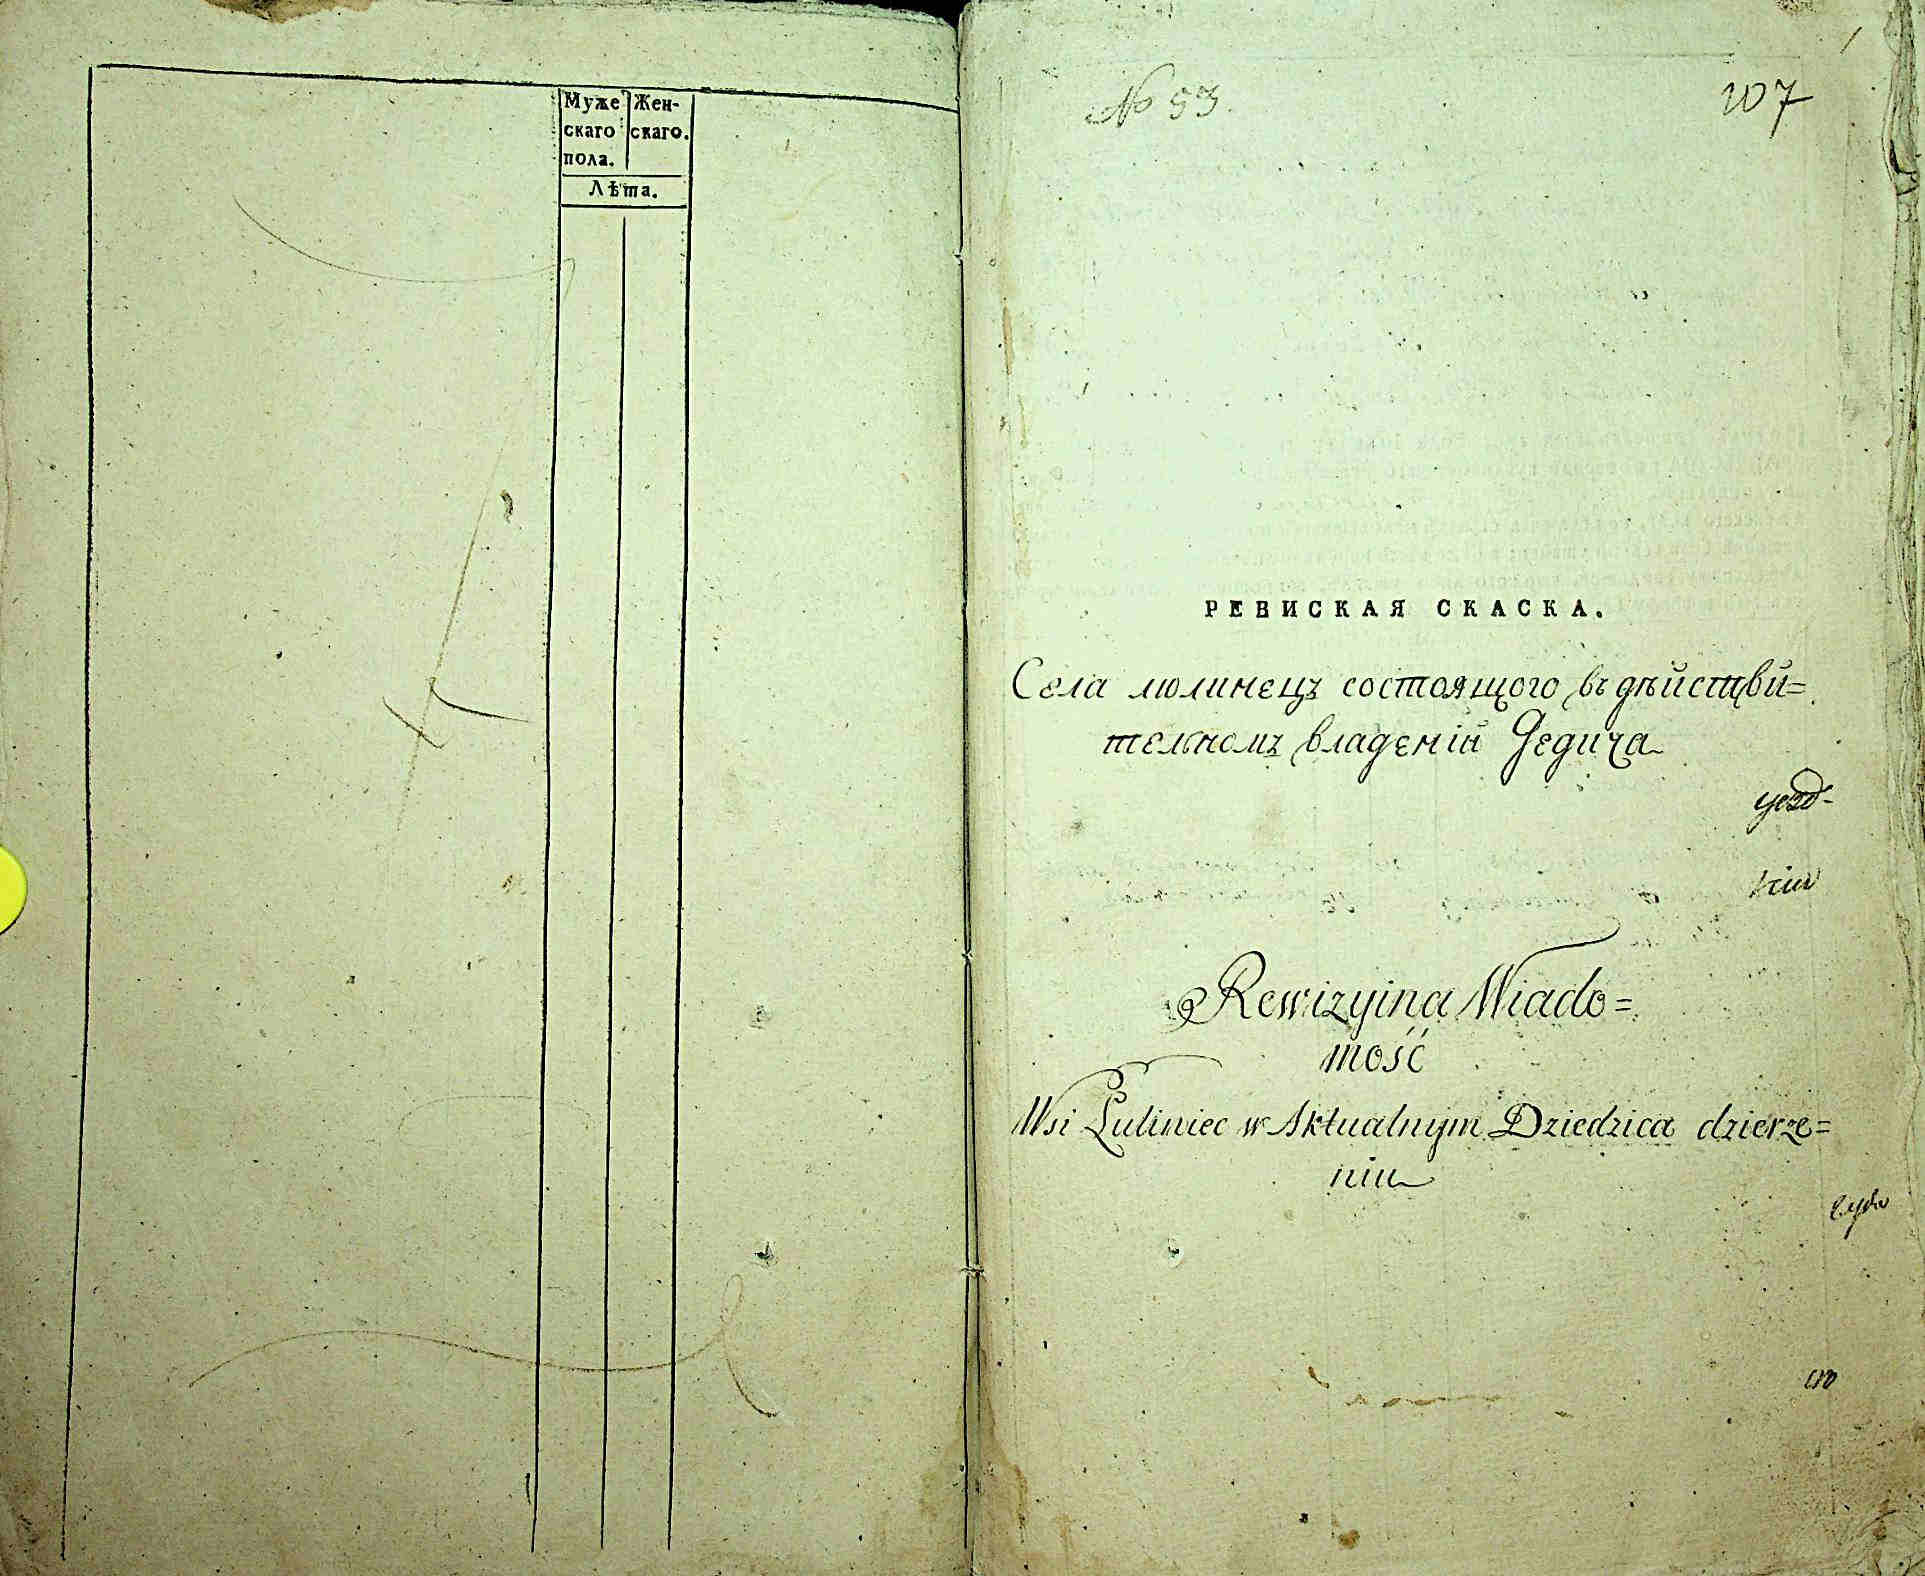 Муже Жен-
скаго скаго.
пола.
Лѣта.
№ 53.
107
РЕВИСКАЯ СКАСКА.
Села люлинецъ состоящого въ дѣйстви=
тельномъ владенїи Дедича
уезд-
нїи
Rewizyina Wiado=
mość
Wsi Luliniec w Aktualnym Dziedzica dzierze=
niu